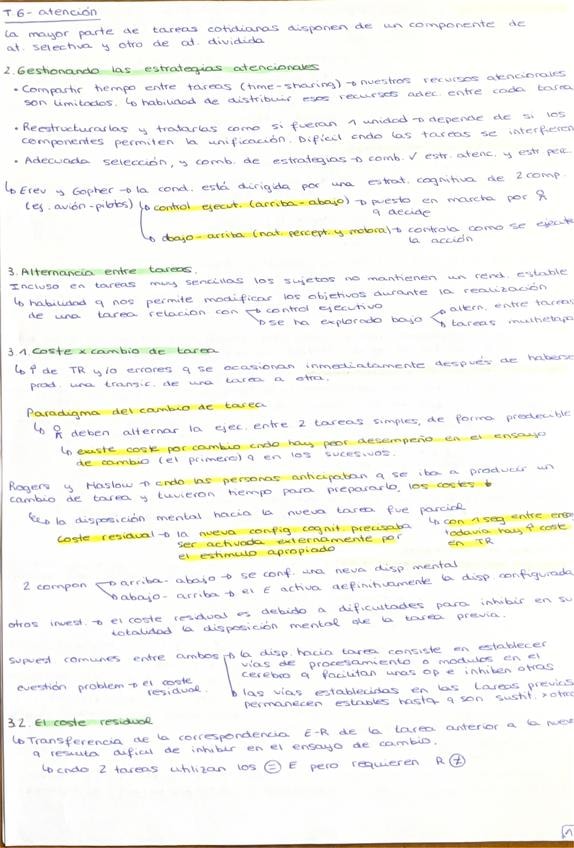 T6- atención
La mayor parte de tareas cotidianas disponen de un componente de
at. selectiva y otro de at. dividida
2. Gestionando las estrategias atencionales
• Compartir tiempo entre tareas (time-sharing) → nuestros recursos atencionales
son limitados. ↳ habilidad de distribuir esos recursos adec. entre cada tarea
• Reestructurarlas y tratarlas como si fueran 1 unidad → depende de si los
componentes permiten la unificación. Difícil cndo las tareas se interfieren
• Adecuada selección, y comb. de estrategias → comb. ✓ estr. atenc. y estr perc.
↳ Erev y Gopher → la cond. está dirigida por una estrat. cognitiva de 2 comp.
(ej. avión-pilotos) ↳ control ejecut. (arriba-abajo) → puesto en marcha por
q decide
↳ abajo-arriba (nat. percept. y motora) → controla como se ejecute
la acción
3. Alternancia entre tareas.
Incluso en tareas muy sencillas los sujetos no mantienen un rend. estable
↳ habilidad q nos permite modificar los objetivos durante la realización
de una tarea relación con → control ejecutivo
→ se ha explorado bajo → altern. entre tareas
→ tareas multietapa
3.1. Coste x cambio de tarea
↳ ↑ de TR y/o errores q se ocasionan inmediatamente después de haberse
prod. una transic. de una tarea a otra.
Paradigma del cambio de tarea
↳ deben alternar la ejec. entre 2 tareas simples, de forma predecible
↳ existe coste por cambio cndo hay peor desempeño en el ensayo
de cambio (el primero) q en los sucesivos.
Rogers y → cndo las personas anticipaban q se iba a producir un
cambio de tarea y tuvieron tiempo para prepararlo, los costes ↓
↳ la disposición mental hacia la nueva tarea fue parcial
Coste residual → la nueva config. cognit. precisaba
ser activada externamente por
el estímulo apropiado
↳ con 1 seg entre
todavía hay ↑ coste
en TR
2 compon → arriba-abajo → se conf. una neva disp mental
→ abajo-arriba → el E activa definitivamente la disp configurada
otros invest. → el coste residual es debido a dificultades para inhibir en su
totalidad la disposición mental de la tarea previa.
supuest comunes entre ambos → la disp. hacia tarea consiste en establecer
vías de procesamiento o modulos en el
cerebro q facilitan unas op e inhiben otras
cuestión problem → el coste
residual.
→ las vías establecidas en las tareas previas
permanecen estables hasta q son sustit. x otras
3.2. El coste residual
↳ Transferencia de la correspondencia E-R de la tarea anterior a la
q resulta dificil de inhibir en el ensayo de cambio.
↳ cndo 2 tareas utilizan los = E pero requieren R ≠